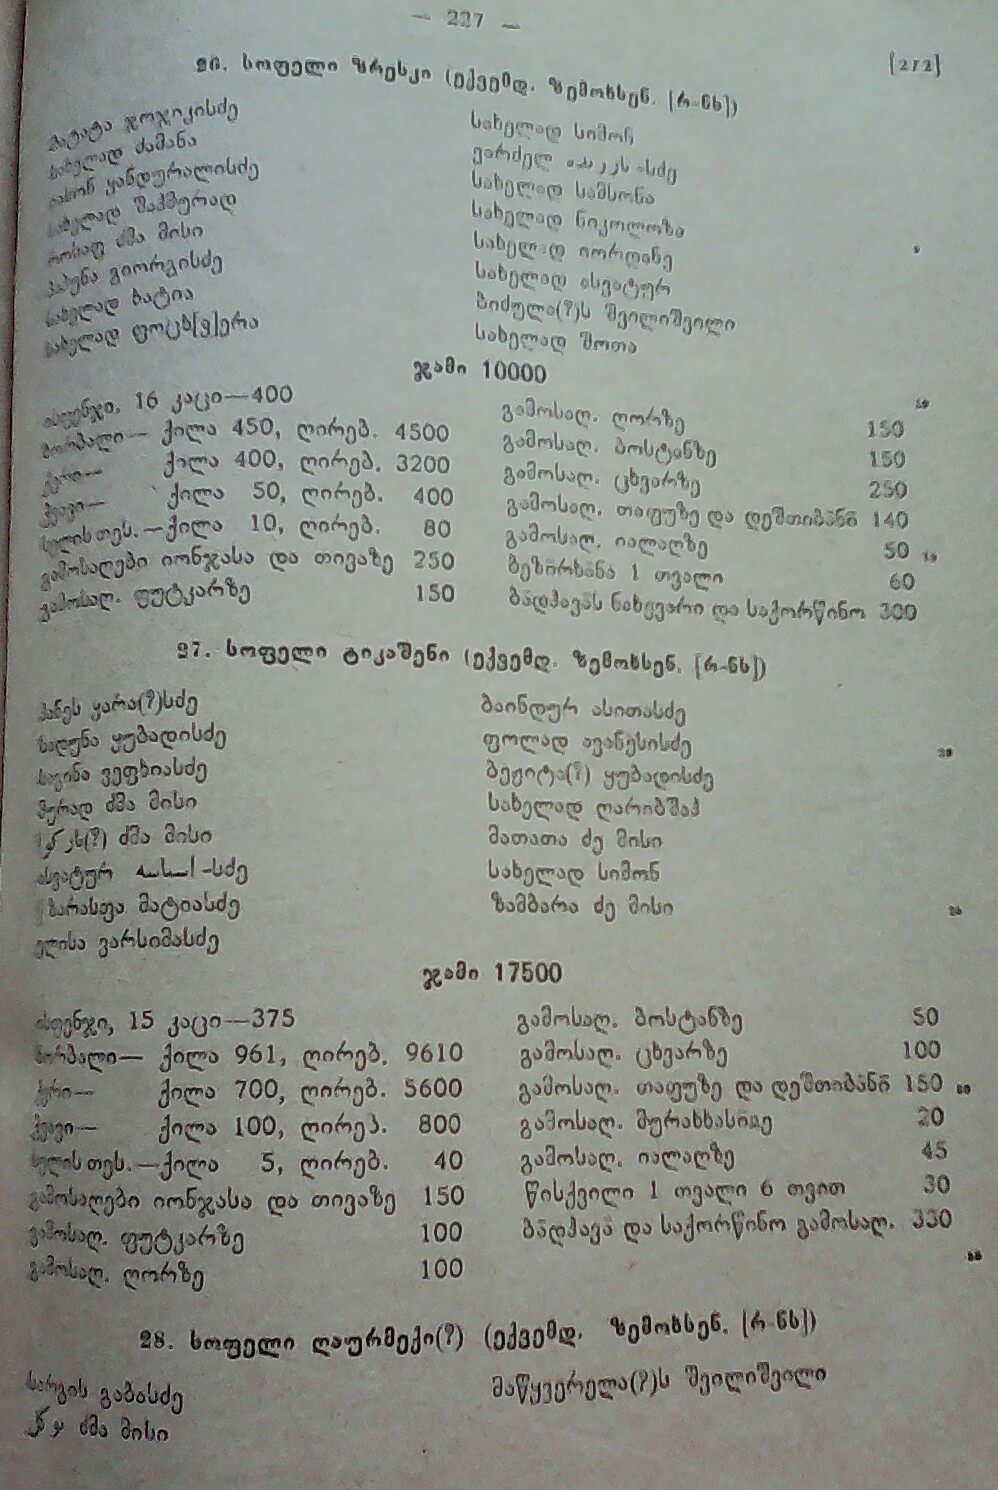 — 227 —
[212]
26. სოფელი ზრესკი (ექვემდ. ზემოხსენ. [რ-ნს])
ჯოჯიკისძე
სახელად ძამანა
იასონ ყანდურალისძე
სახელად შაჰმურად
როსაფ ძმა მისი
პაპუნა გიორგისძე
სახელად ბატია
სახელად ფოცხ[ვ]ერა
სახელად სიმონ
ვარძელ
სახელად სამსონა
სახელად ნიკოლოზა
სახელად იორდანე
სახელად ასვატურ
ბიძულა(?)ს შვილიშვილი
სახელად შოთა
ჯამი 10000
ისფენჯი, 16 კაცი—400
ხორბალი— ქილა 450, ღირებ. 4500
ქერი— ქილა 400, ღირებ. 3200
ჭვავი— ქილა 50, ღირებ. 400
სელის თეს.—ქილა 10, ღირებ. 80
გამოსაღები იონჯასა და თივაზე 250
გამოსაღ. ფუტკარზე 150
გამოსაღ. ღორზე 150
გამოსაღ. ბოსტანზე 150
გამოსაღ. ცხვარზე 250
გამოსაღ. თაფუზე და დეშთიბანზე 140
გამოსაღ. იალაღზე 50
ბეზირხანა 1 თვალი 60
ბადჰავას ნახევარი და საქორწინო 300
27. სოფელი ტიკაშენი (ექვემდ. ზემოხსენ. [რ-ნს])
ჰანეს ყარა(?)სძე
ზადუნა ყუბადისძე
სავინა ვეფხიასძე
მურად ძმა მისი
(?) ძმა მისი
ასვატურ -სძე
ზარასფა მატიასძე
ელისა ვარსიმასძე
ბაინდურ ასითასძე
ფოლად ავანესისძე
ბეჟიტა(?) ყუბადისძე
სახელად ღარიბშაჰ
მათათა ძე მისი
სახელად სიმონ
ზამბარა ძე მისი
ჯამი 17500
ისფენჯი, 15 კაცი—375
ხორბალი— ქილა 961, ღირებ. 9610
ქერი— ქილა 700, ღირებ. 5600
ჭვავი— ქილა 100, ღირებ. 800
სელის თეს.—ქილა 5, ღირებ. 40
გამოსაღები იონჯასა და თივაზე 150
გამოსაღ. ფუტკარზე 100
გამოსაღ. ღორზე 100
გამოსაღ. ბოსტანზე 50
გამოსაღ. ცხვარზე 100
გამოსაღ. თაფუზე და დეშთიბანზე 150
გამოსაღ. 20
გამოსაღ. იალაღზე 45
წისქვილი 1 თვალი 6 თვით 30
ბადჰავა და საქორწინო გამოსაღ. 330
28. სოფელი ღაურმექი(?) (ექვემდ. ზემოხსენ. [რ-ნს])
სარგის გაბასძე
ძმა მისი
მაწყვერელა(?)ს შვილიშვილი